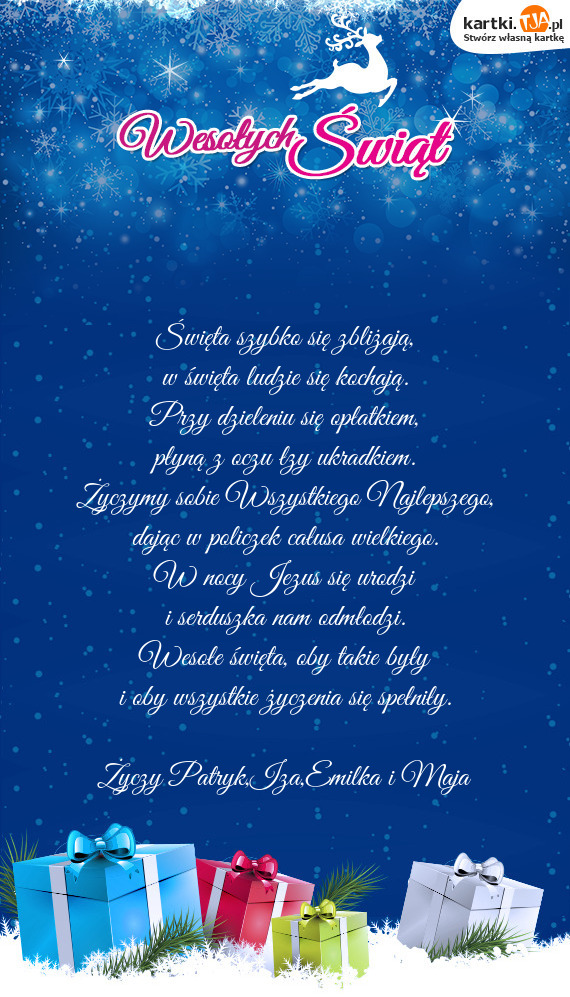 kartki.TJA.pl
Stwórz własną kartkę
Wesołych Świąt
Święta szybko się zbliżają,
w święta ludzie się kochają.
Przy dzieleniu się opłatkiem,
płyną z oczu łzy ukradkiem.
Życzymy sobie Wszystkiego Najlepszego,
dając w policzek całusa wielkiego.
W nocy Jezus się urodzi
i serduszka nam odmłodzi.
Wesołe święta, oby takie były
i oby wszystkie życzenia się spełniły.
Życzy Patryk,Iza,Emilka i Maja